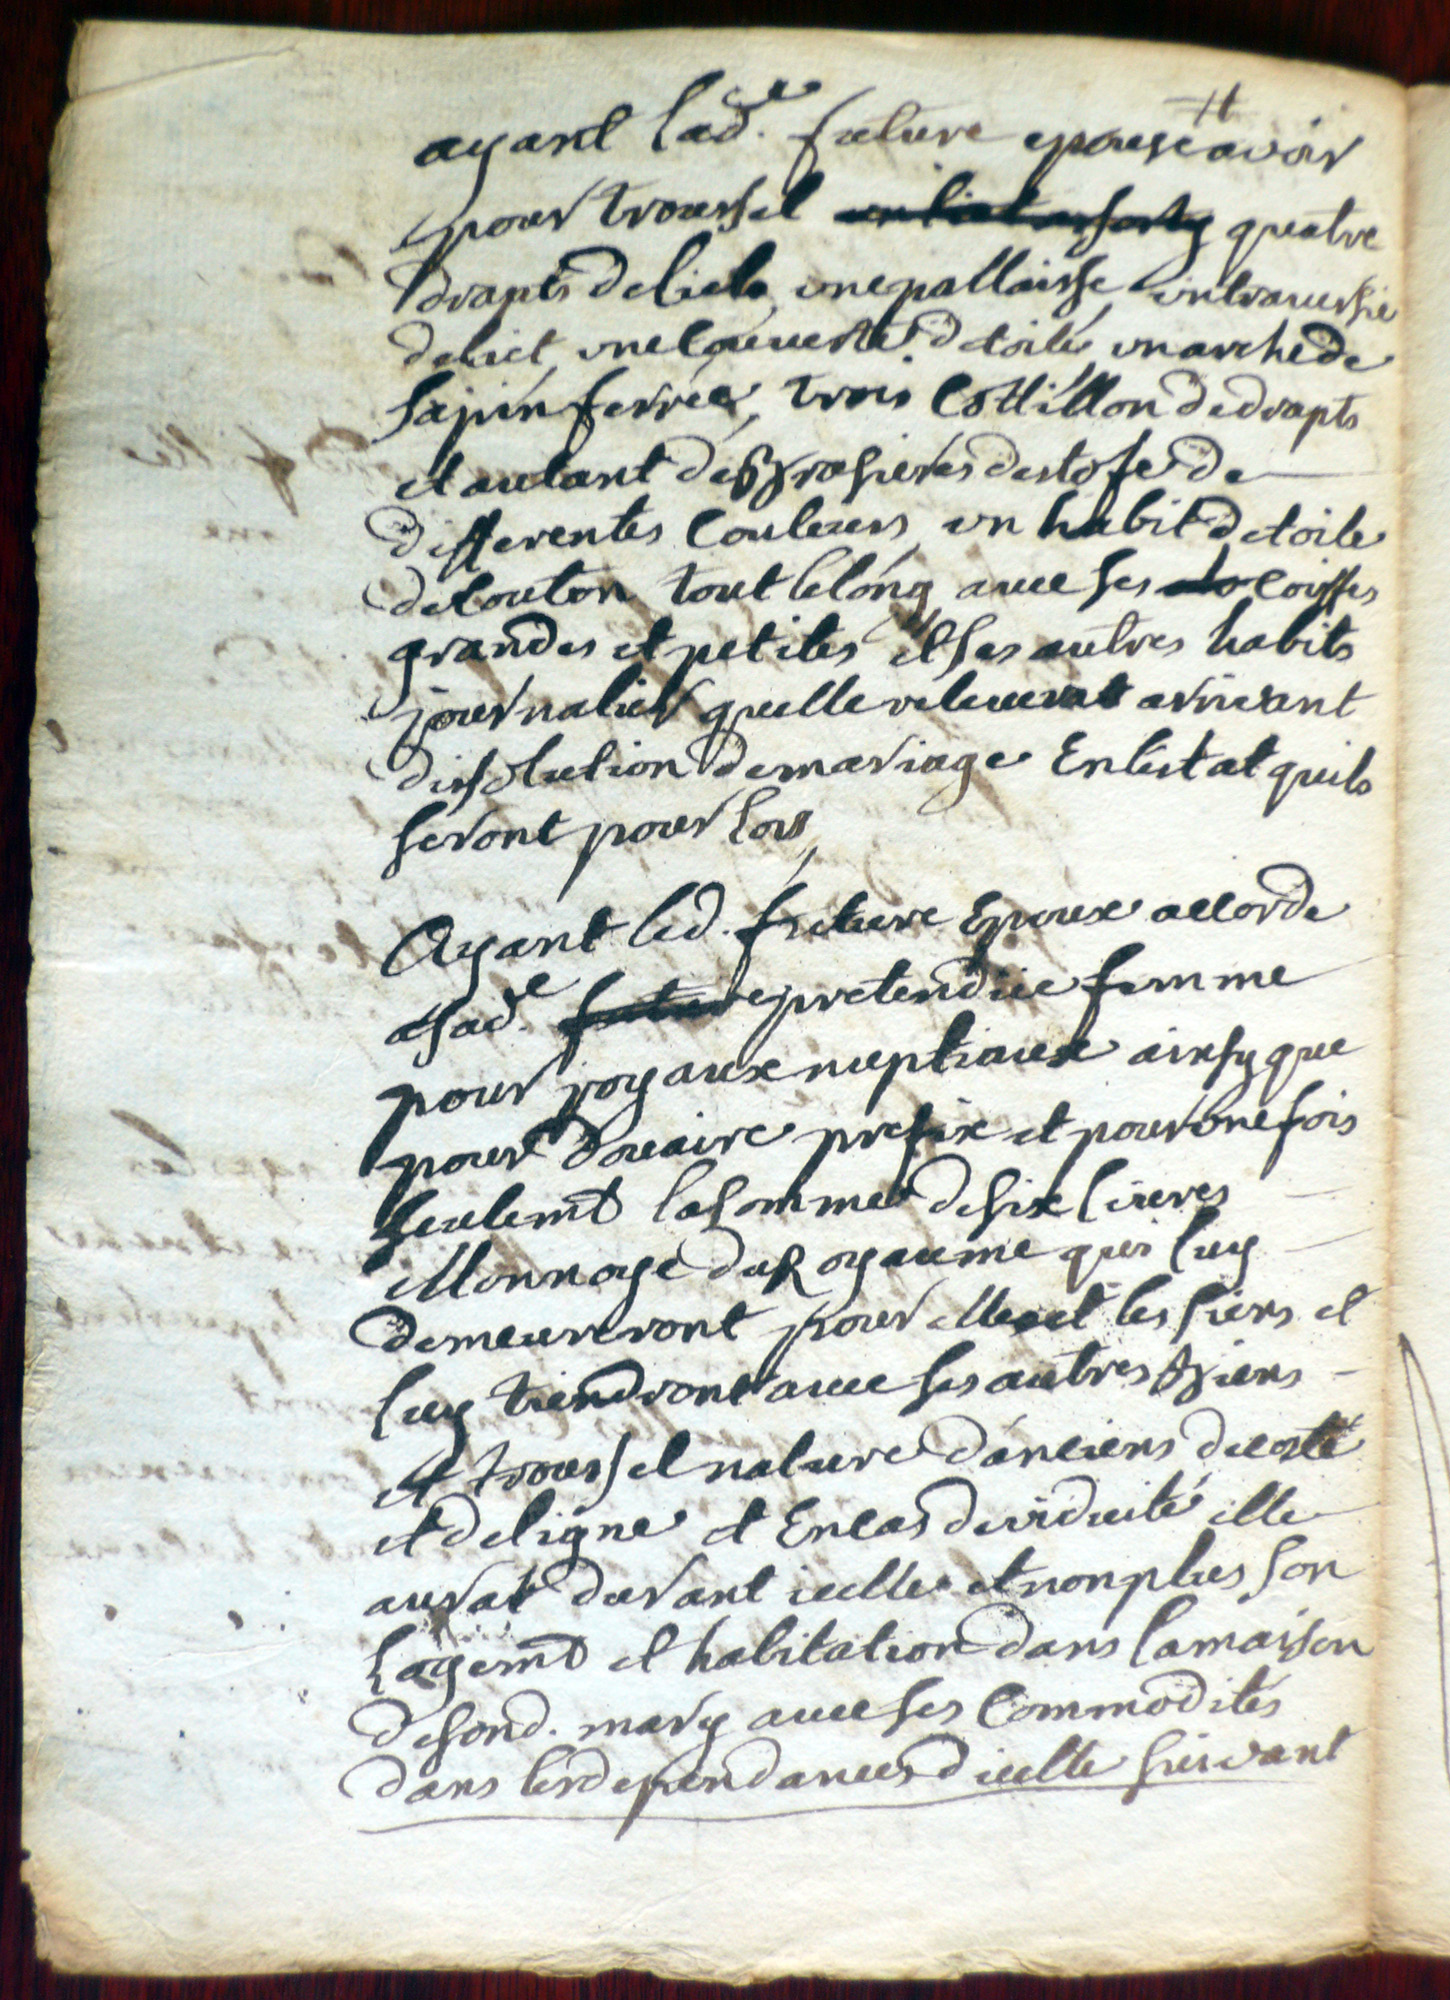 ayant lad.e future epouse avoir
pour troussel quatre
drapts de lict, une pallaisse, un traversie
de lict une couverte de toile, un arche de
sapin ferrée, trois cottillon de drapts
et autant de brasieres destofe de
differentes couleurs, un habit de toile
de couton tout le long avec ses coiffes
grandes et petites et ses autres habits
journalier quelle releverat arrivant
dissolution de mariage En lestat quils
seront pour lors,
Ayant led. future Epoux accorde
a sad.e pretendüe femme
pour joyaux nuptiaux ainsy que
pour douaire prefix et pour une fois
seulemt la somme de six livres
Monnoye du Royaume qui luy
demeureront pour elle et les siens et
luy tiendront avec ses autres biens
et troussel nature d'anciens de coste
et de ligne et En cas de viduité elle
aurat durant icelle et non plus son
Logemt et habitation dans la maison
de sond. mary avec ses Commodités
dans les dependances d icelle suivant